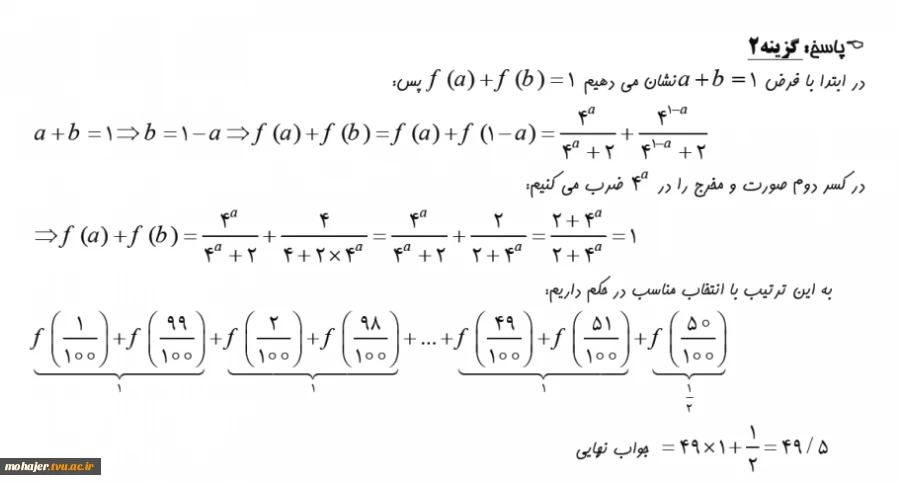 پاسخ: گزینه ۲
در ابتدا با فرض a + b = ۱ نشان می دهیم f (a) + f (b) = ۱ پس:
a + b = ۱ ⇒ b = ۱ − a ⇒ f (a) + f (b) = f (a) + f (۱ − a) = ۴^a / (۴^a + ۲) + ۴^(۱−a) / (۴^(۱−a) + ۲)
در کسر دوم صورت و مخرج را در ۴^a ضرب می کنیم:
⇒ f (a) + f (b) = ۴^a / (۴^a + ۲) + ۴ / (۴ + ۲ × ۴^a) = ۴^a / (۴^a + ۲) + ۲ / (۲ + ۴^a) = (۲ + ۴^a) / (۲ + ۴^a) = ۱
به این ترتیب با انتخاب مناسب در حکم داریم:
f (۱/۱۰۰) + f (۹۹/۱۰۰) + f (۲/۱۰۰) + f (۹۸/۱۰۰) + ... + f (۴۹/۱۰۰) + f (۵۱/۱۰۰) + f (۵۰/۱۰۰)
۱ ۱ ۱ ۱/۲
= ۴۹ × ۱ + ۱/۲ = ۴۹ / ۵ جواب نهایی
mohajer.tvu.ac.ir